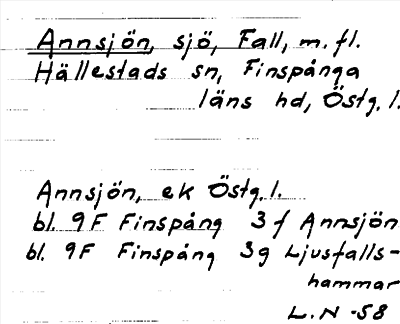 Annsjön, sjö, Fall, m.fl.
Hällestads sn, Finspånga
läns hd, Östg.l.
Annsjön, ek Östg.l.
bl. 9F Finspång 3f Annsjön
bl. 9F Finspång 3g Ljusfalls-
hammar
L.N -58